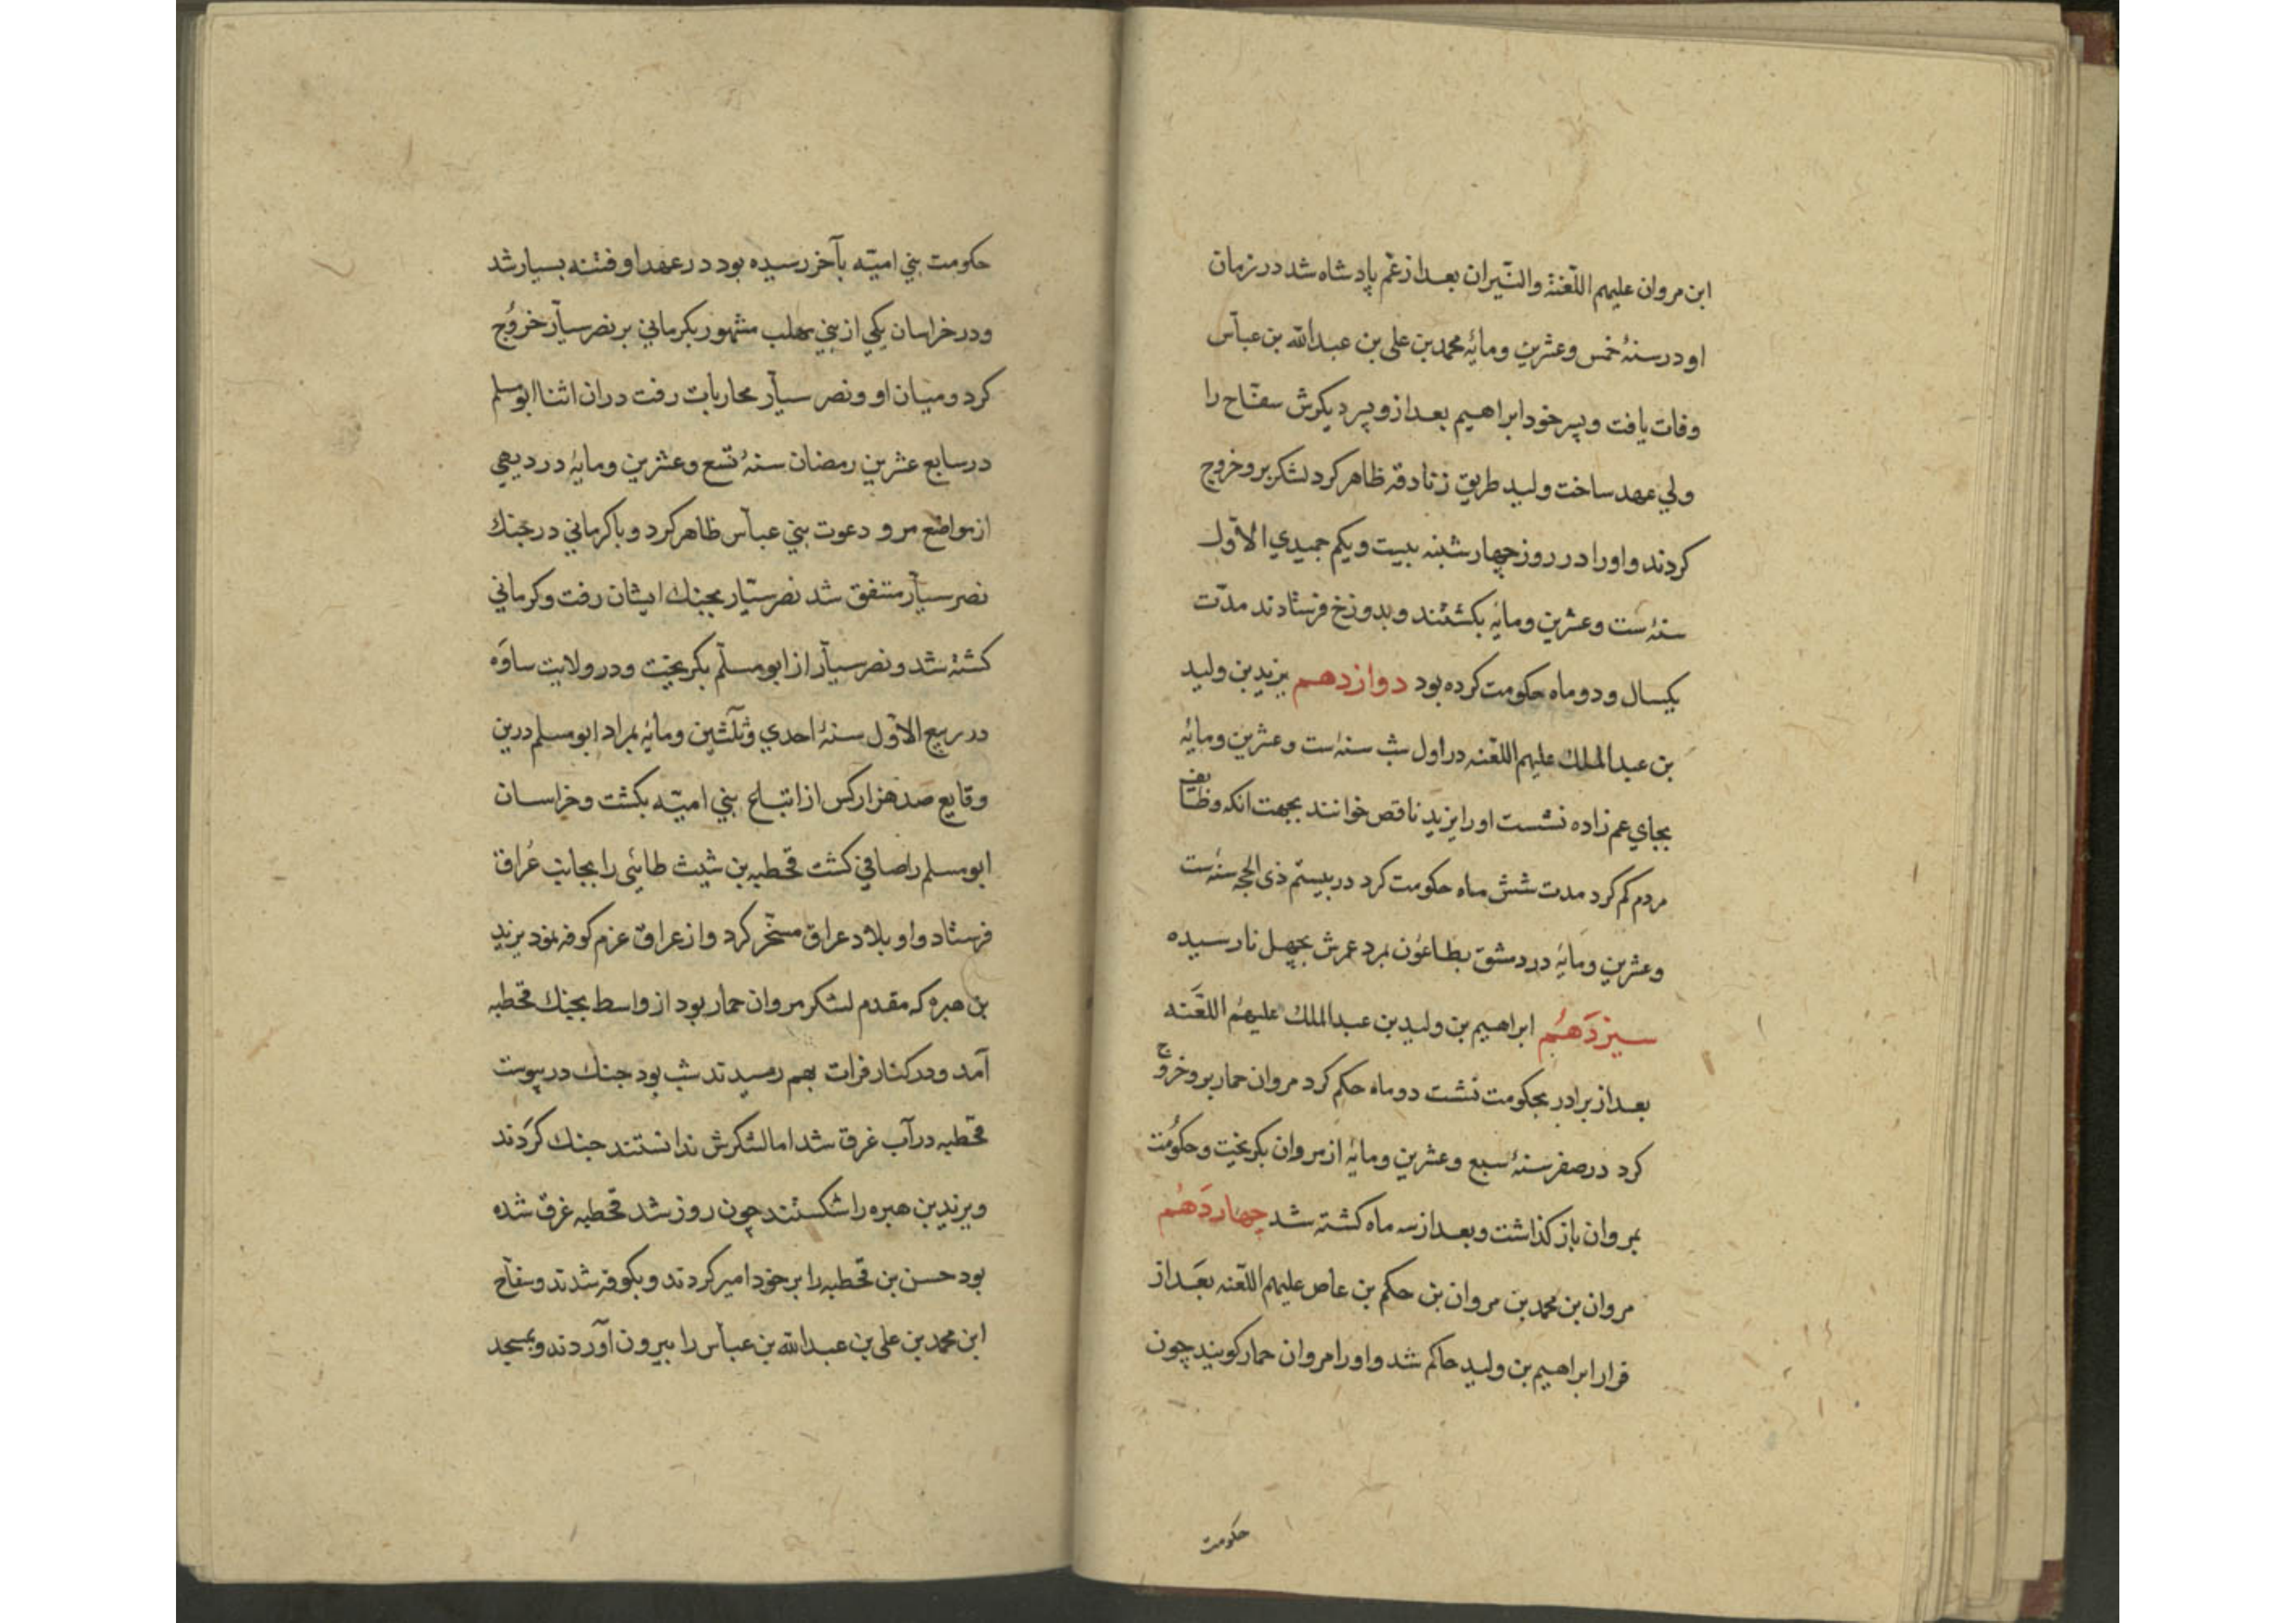 ابن مروان علیهم اللّعنة والنّیران بعد از عم پادشاه شد در زمان
او در سنهٔ خمس وعشرین ومایٔه محمد بن علی بن عبدالله بن عباس
وفات یافت و پسر خود ابراهیم بعد ازو پسر دیکرش سفّاح را
ولي عهد ساخت ولید طریق زنادقه ظاهر کرد لشکر برو خروج
کردند واورا در روز چهارشبنه بیست ویکم جمیدي الاوّل
سنهٔ ست وعشرین ومایٔه بکشتند وبدوزخ فرستادند مدّت
یکسال ودو ماه حکومت کرده بود دوازدهم یزید بن ولید
بن عبدالملك علیهم اللّعنه در اول شب سنهٔ ست وعشرین ومایٔه
بجاي عم زاده نشست اورا یزید ناقص خوانند بجهت انکه وظایف
مردم کم کرد مدت شش ماه حکومت کرد در بیستم ذی الحجه سنهٔ ست
وعشرین ومایٔه در دمشق بطاعون بمرد عمرش بچهل نارسیده
سیزدهم ابراهیم بن ولید بن عبدالملك علیهم اللّعنه
بعد از برادر بحکومت نشست دو ماه حکم کرد مروان حمار برو خروج
کرد در صفر سنهٔ سبع وعشرین ومایٔه از مروان بکریخت وحکومت
بمروان باز کذاشت وبعد از سه ماه کشته شد چهاردهم
مروان بن محمد بن مروان بن حکم بن عاص علیهم اللّعنه بعد از
فرار ابراهیم بن ولید حاکم شد واورا مروان حمار کویند چون
حکومت
حکومت بني امیّه بآخر رسیده بود در عهد او فتنه بسیار شد
ودر خراسان یکي از بني مهلب مشهور بکرماني بر نصر سیّار خروج
کرد ومیان او ونصر سیّار محاربات رفت در ان اثنا ابومسلم
در سابع عشرین رمضان سنهٔ تسع وعشرین ومایٔه در دیهي
از مواضع مرو دعوت بني عباس ظاهر کرد وبا کرماني در جنك
نصر سیّار متفق شد نصر سیّار بجنك ایشان رفت وکرماني
کشته شد ونصر سیّار از ابو مسلم بکریخت ودر ولایت ساوه
در ربیع الاوّل سنهٔ احدي وثلثین ومایٔه بمراد ابو مسلم درین
وقایع صد هزار کس از اتباع بني امیّه بکشت وخراسان
ابو مسلم را صافي کشت قحطبه بن شیث طایٔی را بجانب عراق
فرستاد واو بلاد عراق مسخّر کرد واز عراق عزم کوفه نمود یزید
بن هبره که مقدم لشکر مروان حمار بود از واسط بجنك قحطبه
آمد ودر کنار فرات بهم رسیدند شب بود جنك در پیوست
قحطبه در آب غرق شد اما لشکرش ندانستند جنك کردند
ویزید بن هبره را شکستند چون روز شد قحطبه غرق شده
بود حسن بن قحطبه را بر خود امیر کردند وبکوفه شدند وسفاح
ابن محمد بن علی بن عبدالله بن عباس را بیرون آوردند وبمسجد